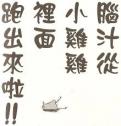 腦汁從
小雞雞
裡面
跑出來啦!!